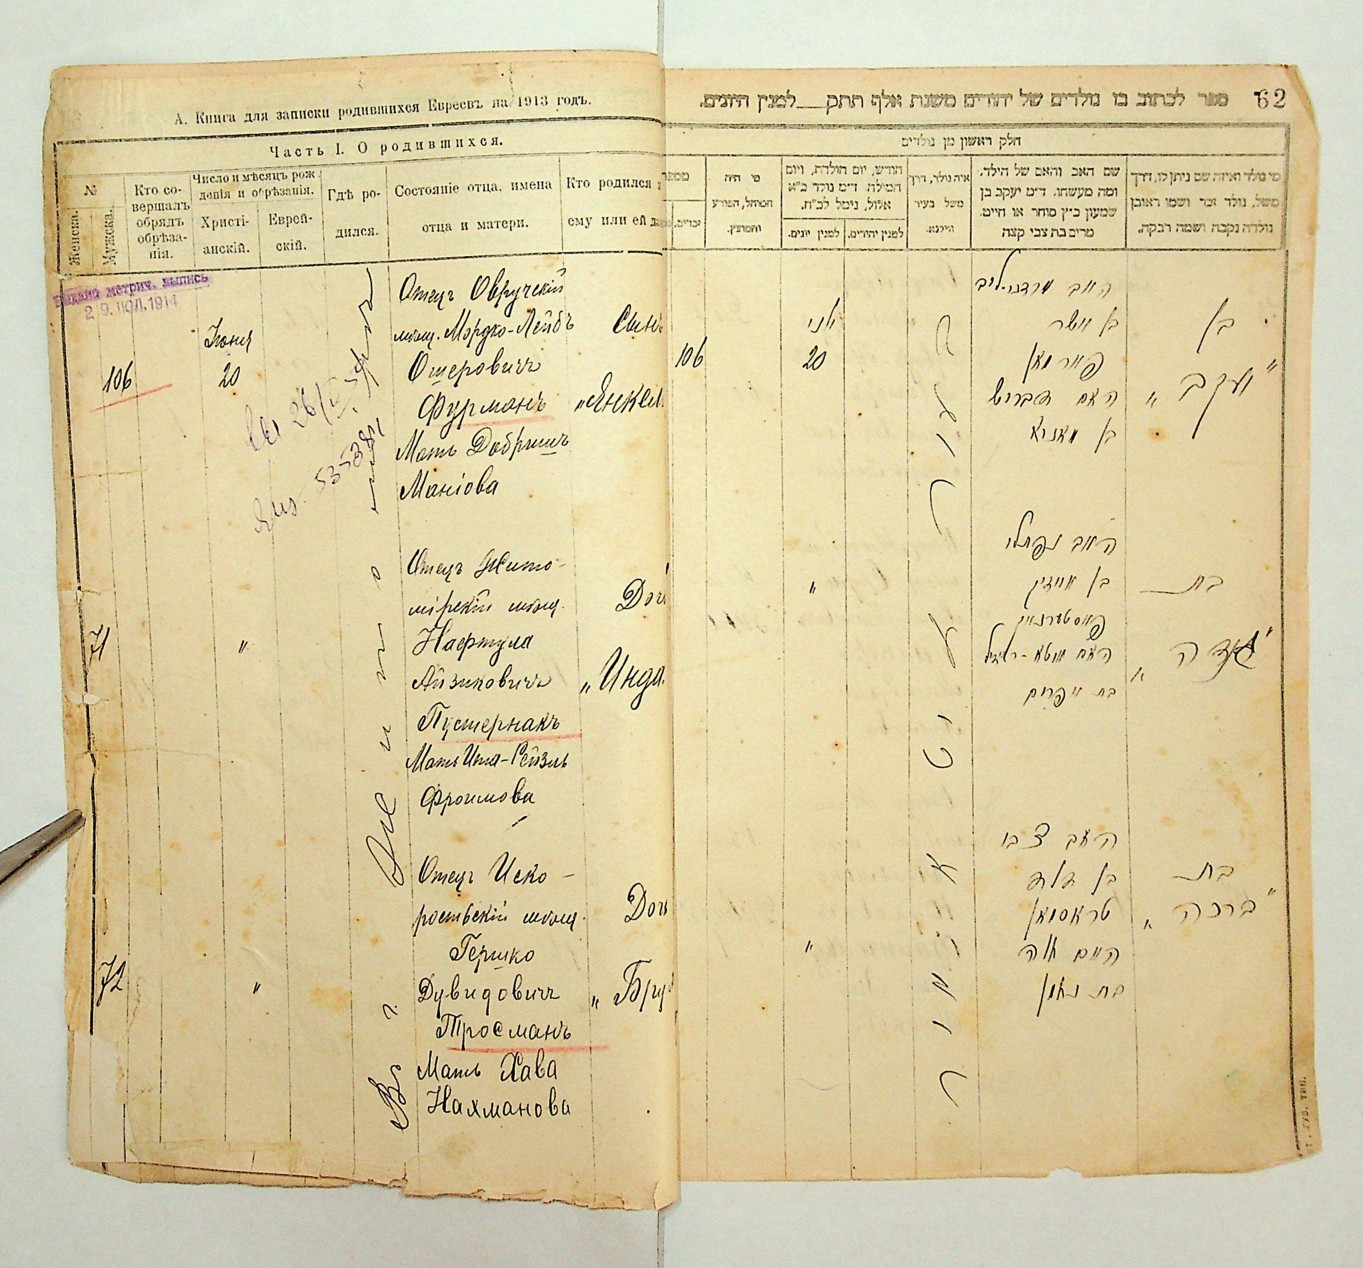 А. Книга для записки родившихся Евреевъ на 1913 годъ.
Часть I. О родившихся.
№
Женска.
Мужска.
Кто со-
вершалъ
обрядъ
обрѣза-
нія.
Число и мѣсяцъ рож-
денія и обрѣзанія.
Христі-
анскій.
Еврей-
скій.
Гдѣ ро-
дился.
Состояніе отца, имена
отца и матери.
Кто родился
ему или ей
Выдана метрич. выпись
29. ІЮЛ. 1914
106
Іюня
20
535381
Въ г. Житомирѣ
Отецъ Овручскій
мѣщ. Мордко-Лейбъ
Ошеровичъ
Фурманъ
Мать Добришъ
Маніова
Сынъ
„Янкель
71
"
Отецъ Жито-
мірскій мѣщ.
Нафтула
Айзиковичъ
Пустернакъ
Мать Ита-Рейзль
Фроимова
Дочь
„Инда
72
"
Отецъ Иско-
ростьскій мѣщ.
Гершко
Дувидовичъ
Тросманъ
Мать Хава
Нахманова
Дочь
„Бру
62
ספר לכתוב בו נולדים של יהודים משנת אלף תתק___למנין היונים.
חלק ראשון מן נולדים
מי נולד ואיזה שם ניתן לו, דרך
משל, נולד זכר ושמו ראובן
נולדה נקבה ושמה רבקה.
שם האב והאם של הילד,
ומה מעשהו, ד״מ יעקב בן
שמעון כ״ץ סוחר או חייט.
מרים בת צבי קצה
איה נולד, דרך
משל בעיר
ווילנא.
חודש, יום הולדת, ויום
המילה, ד״מ נולד כ״א
אלול, נימל לכ״ח.
למנין יהודים.
למנין יונים.
מי היה
המוהל, הפורע
והמוצץ.
מספר
זכרים.
106
יוני
20
ז׳יטאמיר
האב מרדכי-ליב
בן אשר
פורמאן
האם דברוש
בן
"יעקב"
"
האב נפתלי
בן אייזיק
פוסטערנאק
האם איטא-רייזיל
בת אפרים
בת
"
האב צבי
בן דוד
טראסמאן
האם חוה
בת נחמן
בת
"ברכה"